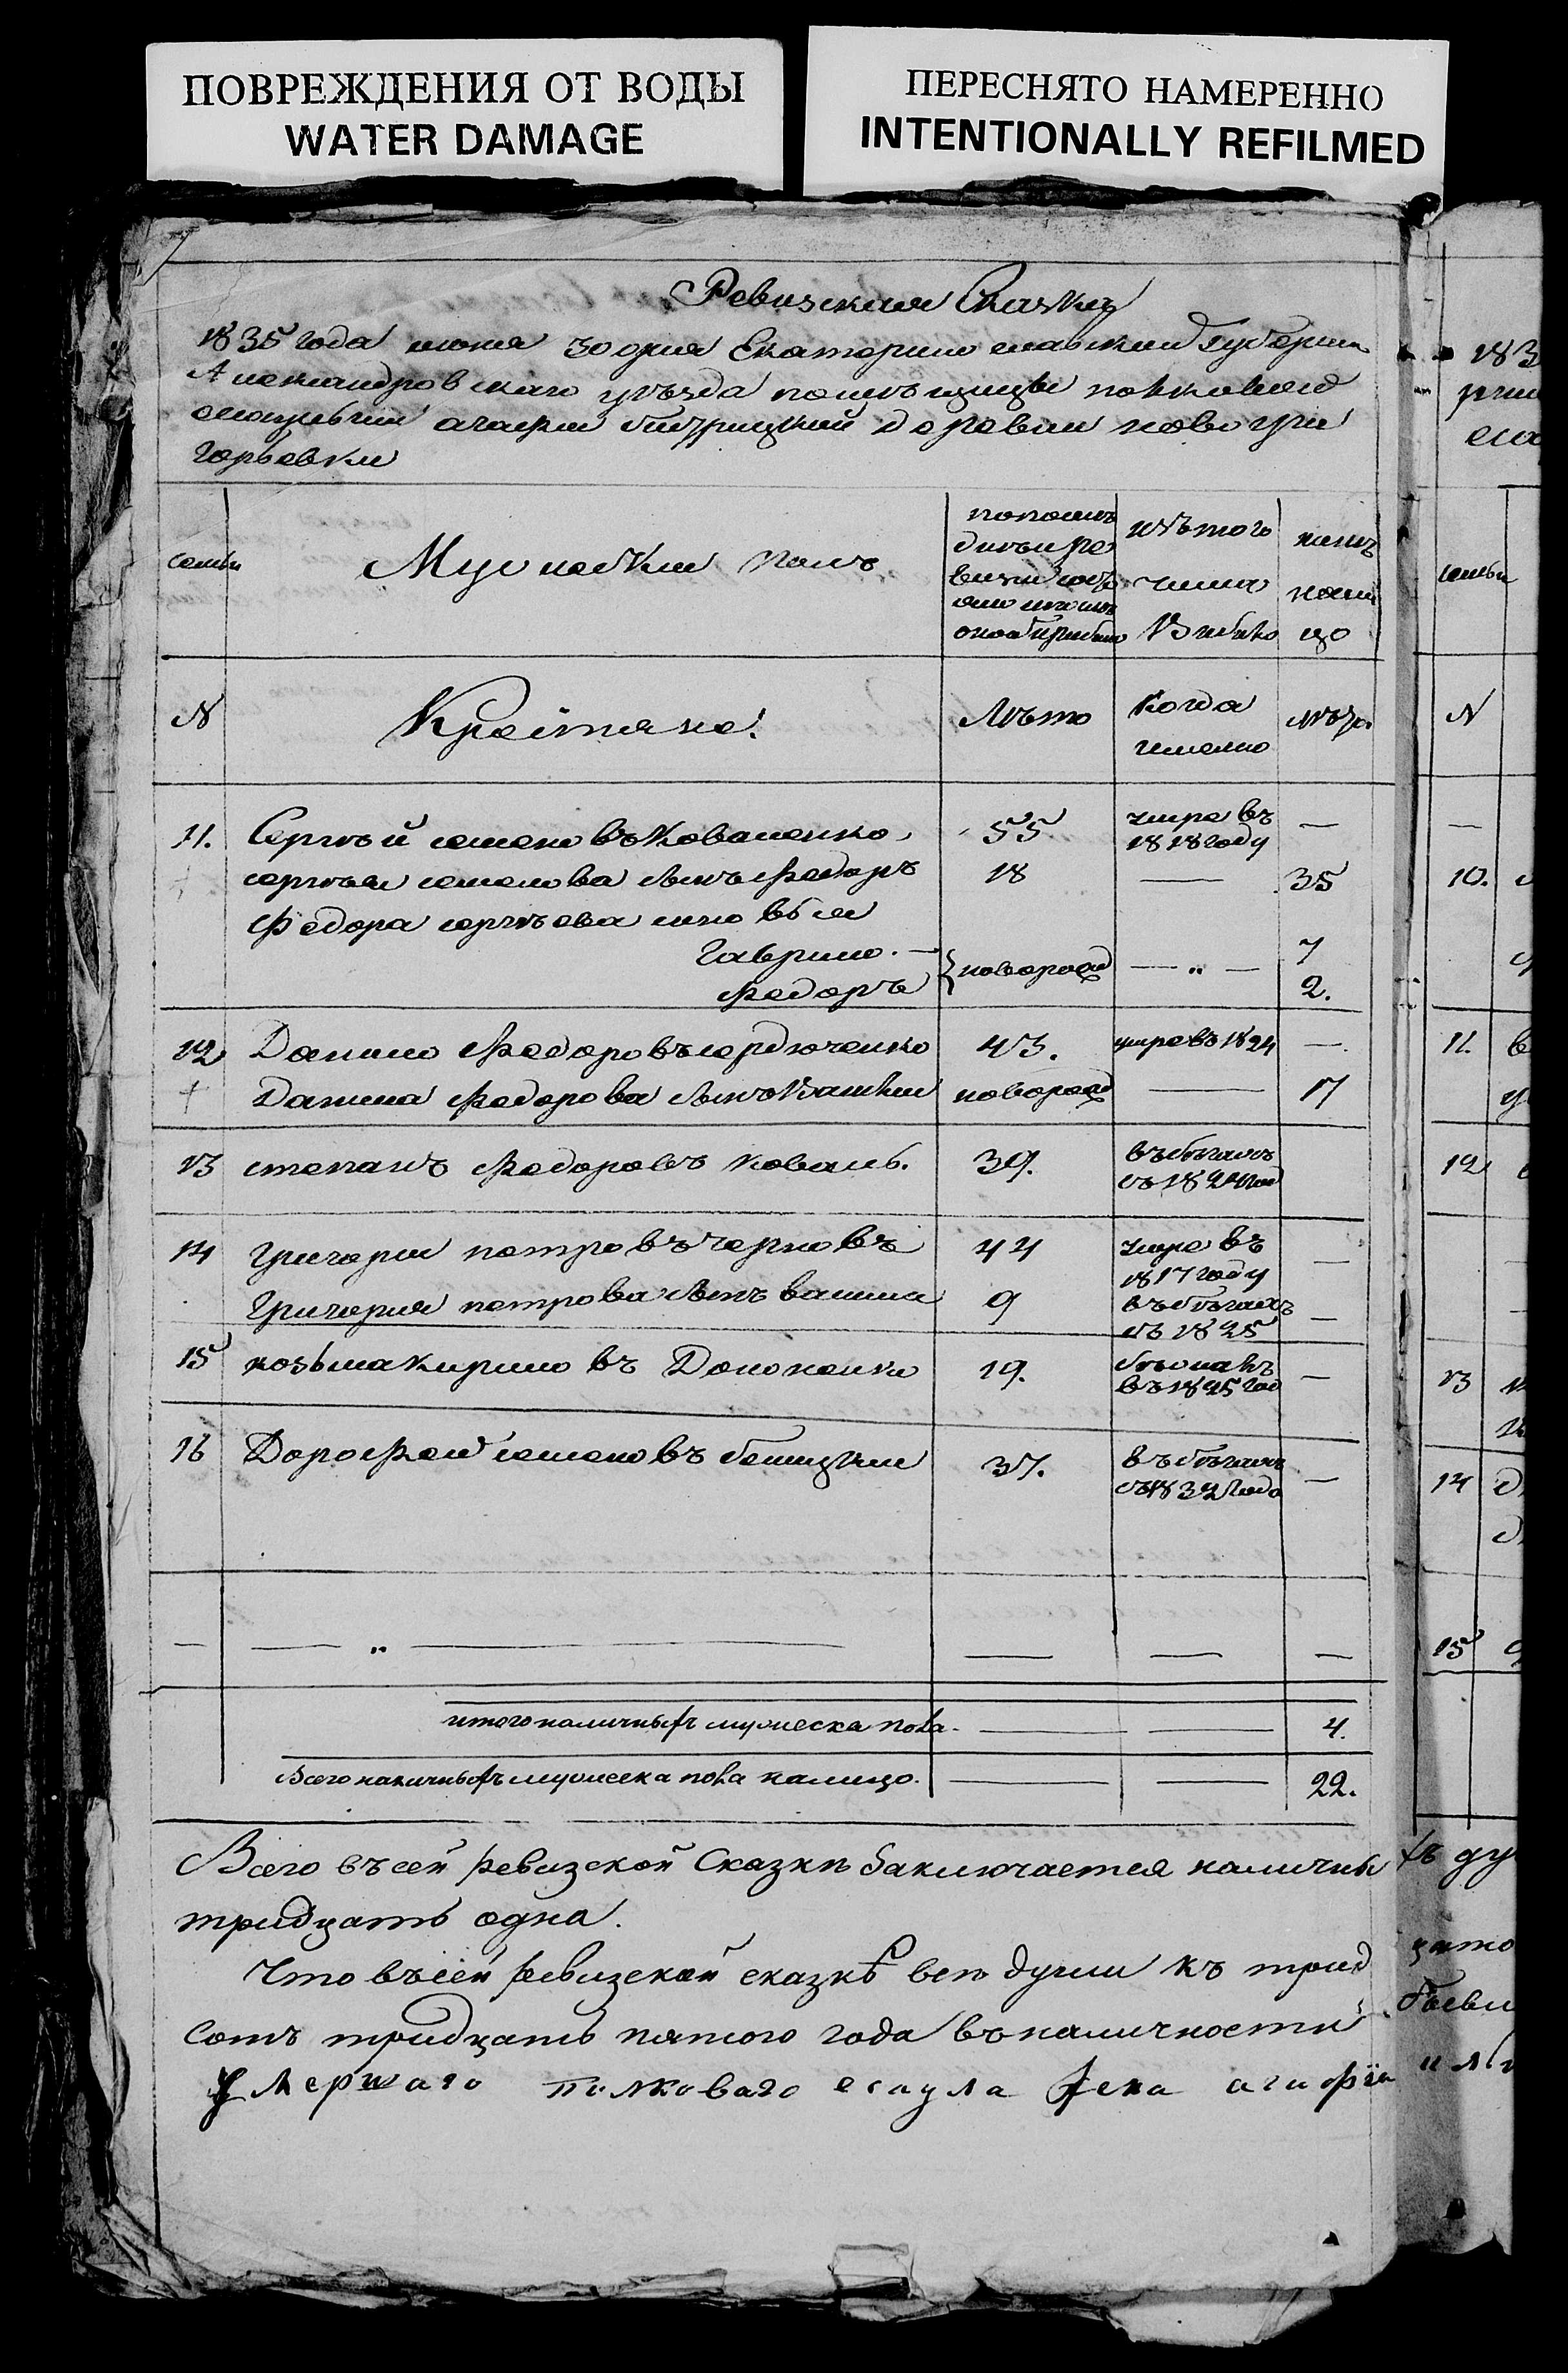 ПОВРЕЖДЕНИЯ ОТ ВОДЫ
WATER DAMAGE
ПЕРЕСНЯТО НАМЕРЕННО
INTENTIONALLY REFILMED
Ревизская Сказка
1835 года июня 30 дня Екатеринославской Губернии
Александровскаго уѣзда помѣщицы полковой
есаульши агафии деревни новогри
горьевки
семьи
Мужескій полъ
по послѣ
дней ре
визіи состо
яло и послѣ
оной прибыло
изъ того
числа
выбыло
нынѣ
нали
цо
N
Крестяне.
Лѣта
Когда
именно
лѣта
11. Сергѣй семеновъ Коваленко 55 умре въ 1818 году —
сергѣя семенова сынъ федоръ 18 — 35
федора сергѣева сыновья
Гаврило. новорож — „ — 7
федоръ 2.
12 Данило федоровъ сердюченко 43. умре въ 1824 —
Данила федорова сынъ новорож — 17
13 степанъ федоровъ коваль. 39. въ бѣгахъ съ 1824 год
14 Григорий петровъ черновъ 44 умре въ 1817 году —
Григория петрова сынъ василий 9 въ бѣгахъ съ 1825 —
15 козьма кириловъ 19. въ 1825 год —
16 Дорофей семеновъ 37. въ бѣгахъ съ 1832 года —
— — „ — — — —
итого наличныхъ мужеска пола — — 4.
Всего наличныхъ мужеска пола налицо. — — 22.
Всего въ сей ревизской Сказкѣ заключается наличны
тридцать одна.
Что въ сей ревизской сказкѣ всѣ души къ трид
сотъ тридцать пятого года въ наличности
Умершаго полковаго есаула жена агафия
183
N
10.
11.
12
13
14
15
хъ ду